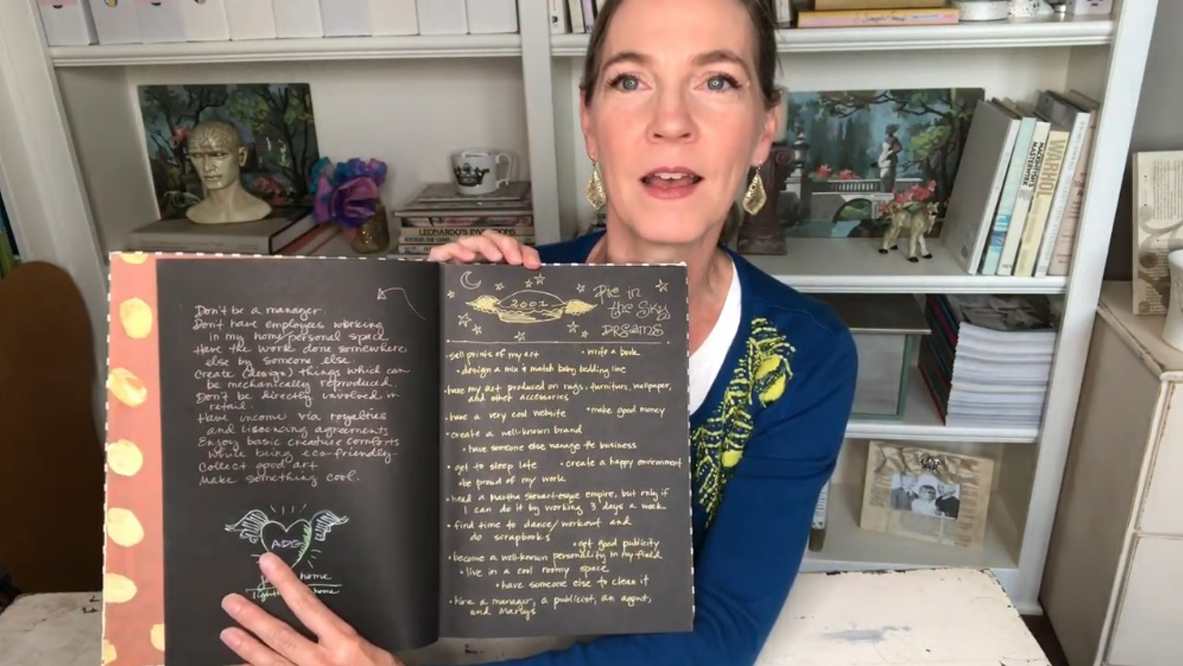 Don't be a manager.
Don't have employees working
in my home/personal space
Have the work done somewhere
else by someone else.
Create (design) things which can
be mechanically reproduced.
Don't be directly involved in
retail.
Have income via royalties
and liscencing agreements
Enjoy basic creature comforts
while being eco-friendly.
Collect good art
Make something cool.
ADG
home
home
2001
Pie in
the Sky
DREAMS
• sell prints of my art • write a book
• design a mix & match baby bedding line
• have my art produced on rugs, furniture, wallpaper,
and other accessories
• have a very cool website • make good money
• create a well-known brand
• have someone else manage the business
• get to sleep late • create a happy environment
• be proud of my work
• head a Martha Stewart-esque empire, but only if
I can do it by working 3 days a week
• find time to dance/workout and
do scrapbooks
• get good publicity
• become a well-known personality in my field
• live in a cool roomy space
• have someone else to clean it
• hire a manager, a publicist, an agent,
and
LEONARDO'S INVENTIONS
WARHOL